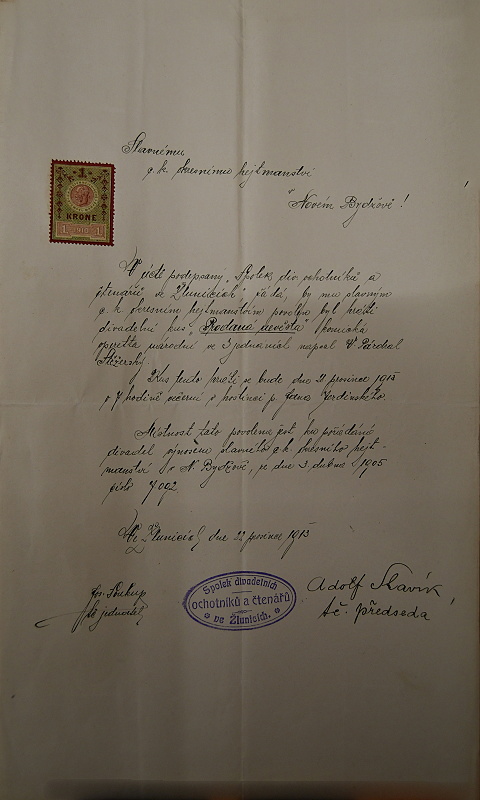 Slavnému
c. k. okresnímu hejtmanství
v Novém Bydžově!
1
KRONE
1 1910 1
V úctě podepsaný, Spolek div. ochotníků a
čtenářů ve Žlunicích", žádá, by mu slavným
c. k. okresním hejtmanstvím povolen byl hráti
divadelní kus, "Prodaná nevěsta" komická
operetta národní ve 3 jednáních napsal V. Párdial
Kus tento hráti se bude dne 21. prosince 1913
o 7 hodině večerní v hostinci p. Jana
Místnost tato povolena jest ku pořádání
divadel výnosem slavného c. k. okresního hejt-
manství v N. Bydžově, ze dne 3. dubna 1905
číslo 7092
Ve Žlunicích dne 22 prosince 1913
Jos. Soukup
jednatel
Spolek divadelních
ochotníků a čtenářů
ve Žlunicích.
Adolf Slavík
t.č. předseda